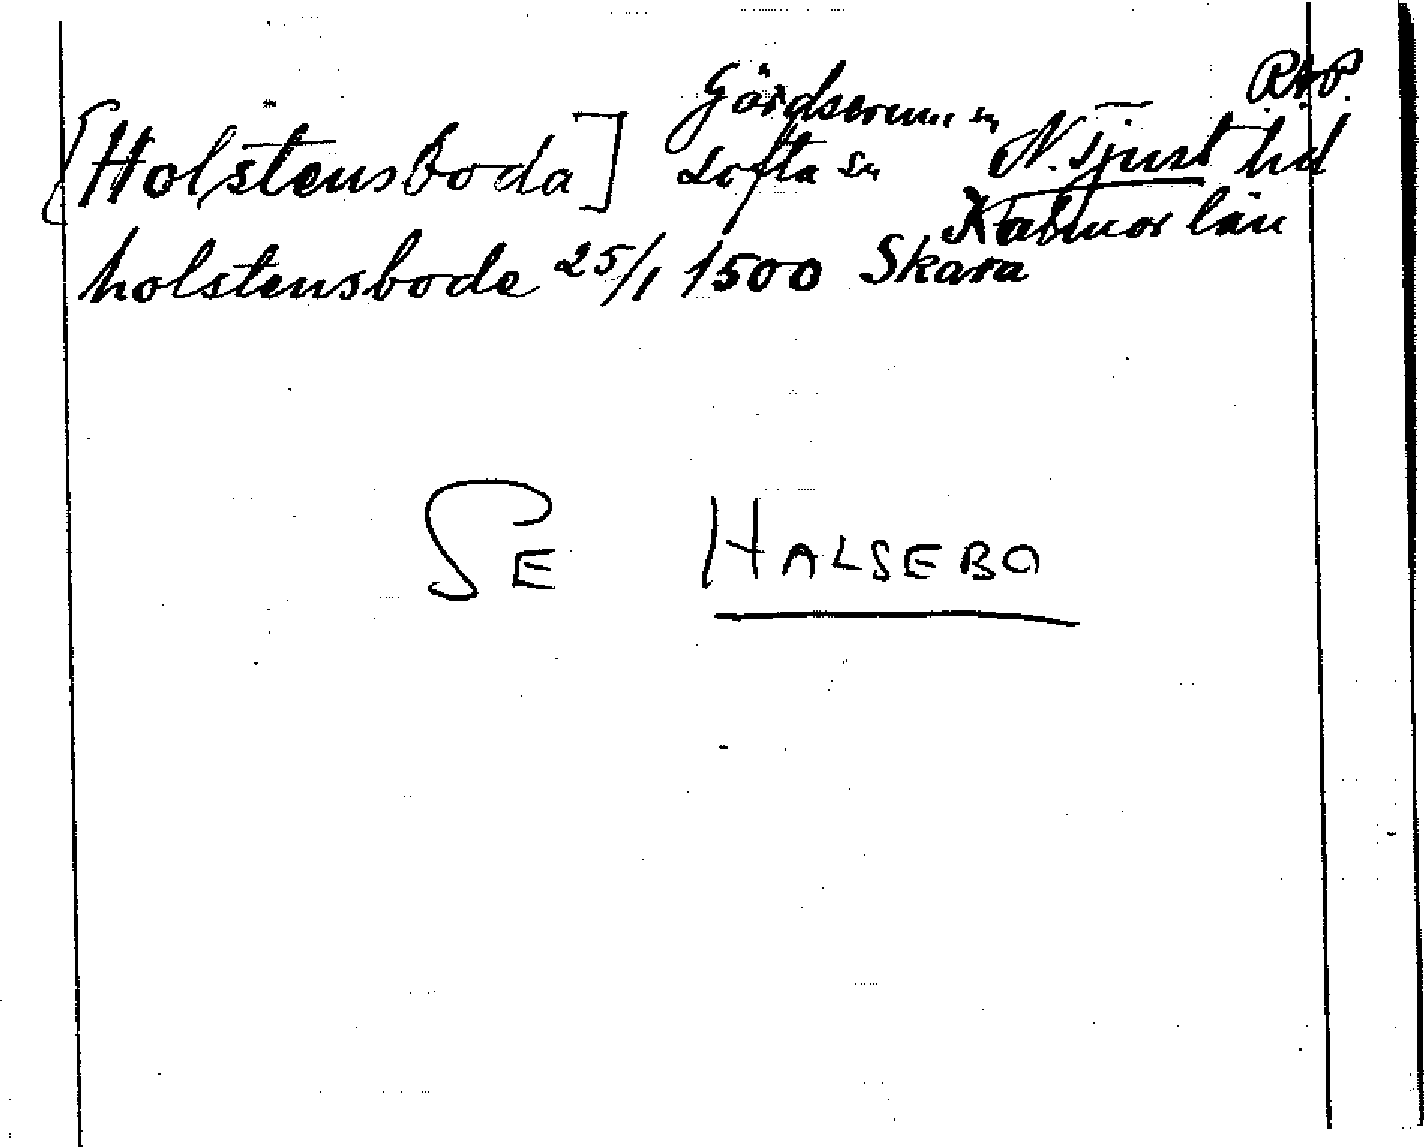 RAP.
[Holstensboda] Gärdserum sn
Lofta sn N. Tjust hd
Kalmar län
holstensbode 25/1 1500 Skara
SE HALSEBO